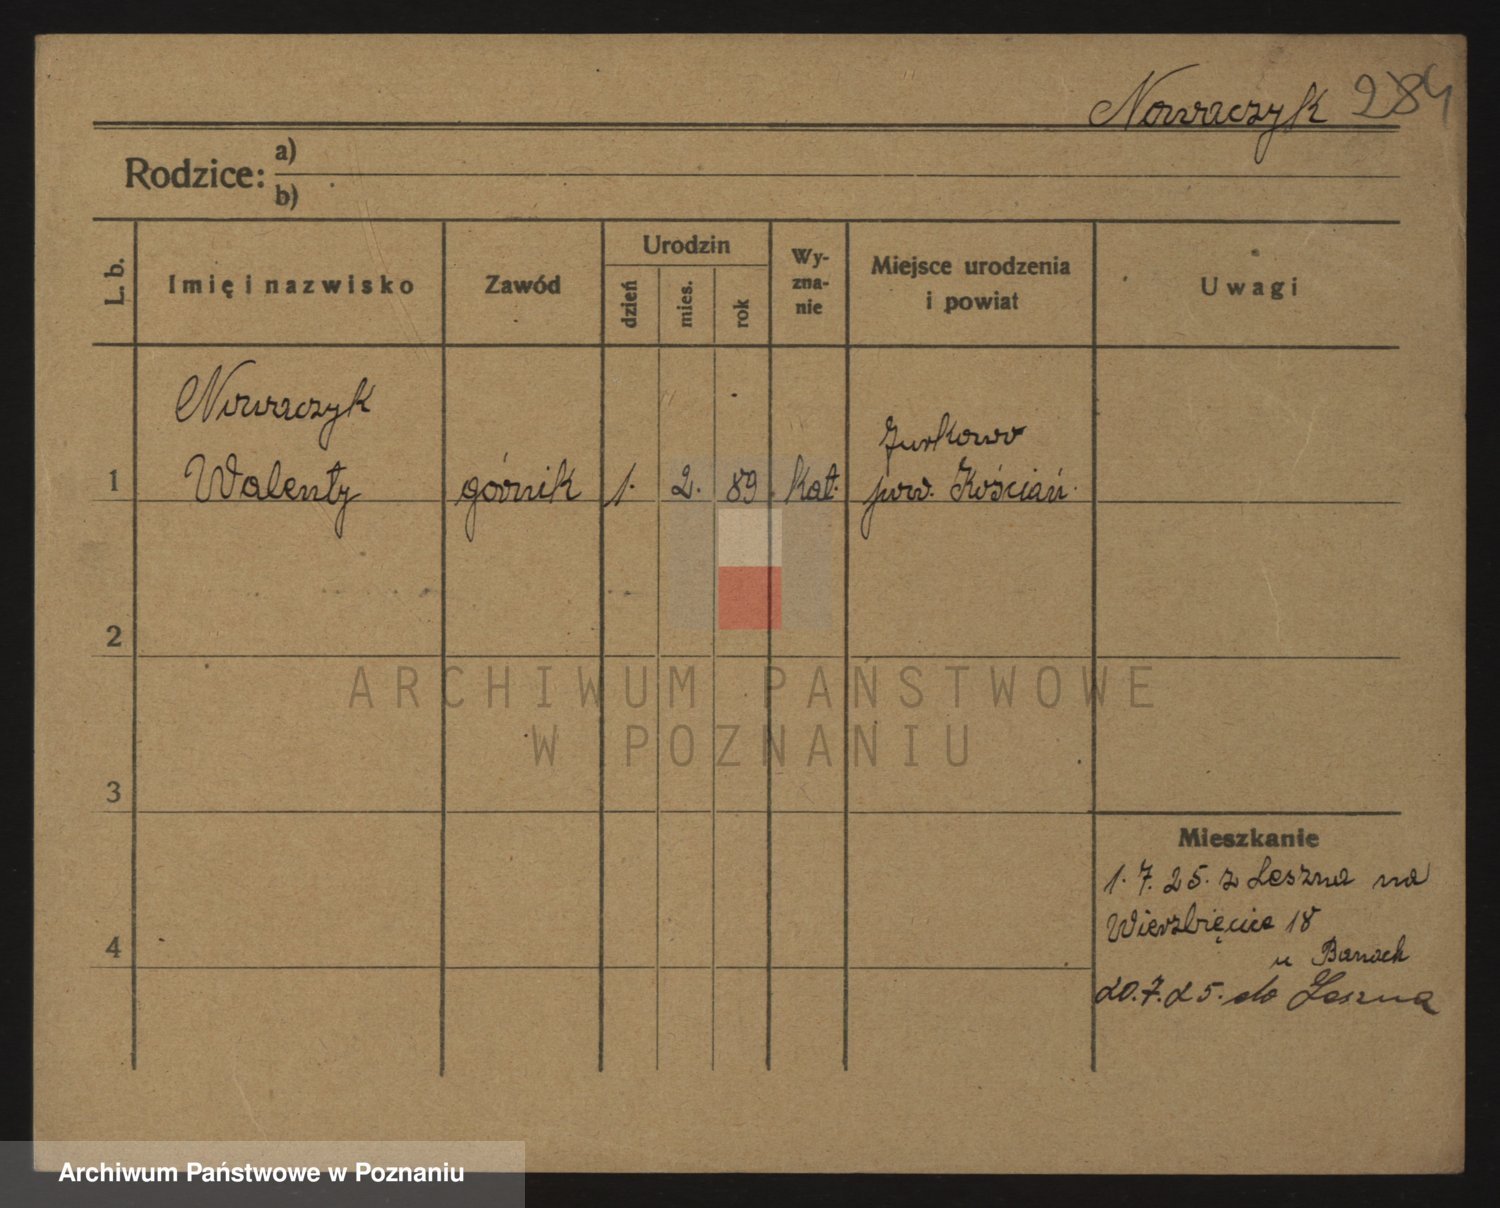 Nowaczyk 284
Rodzice: a)
b)
L. b.
Imię i nazwisko
Zawód
Urodzin
dzień
mies.
rok
Wy-
zna-
nie
Miejsce urodzenia
i powiat
Uwagi
Nowaczyk
Walenty
1
górnik
1.
2.
89
kat.
Jurkowo
pow. Kościan
2
3
4
Mieszkanie
1.7.25. z Leszna na
Wierzbięcice 18
u Banach
20.7.25. do Leszna
ARCHIWUM PAŃSTWOWE
W POZNANIU
Archiwum Państwowe w Poznaniu